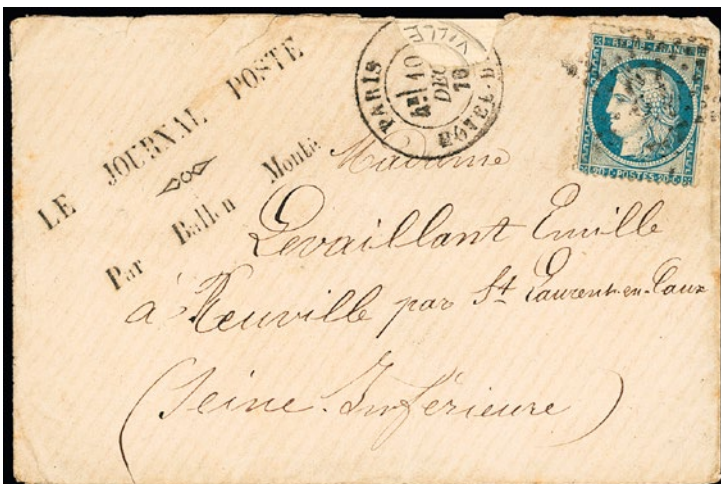 LE JOURNAL POSTE
Par Ballon Monté
PARIS HOTEL-DE-VILLE
4E 10
DEC
70
REPUB. FRANC.
20 C. POSTES 20 C.
Madame
Levaillant Emille
à Reuville par St Laurent-en-Caux
(Seine-Inférieure)